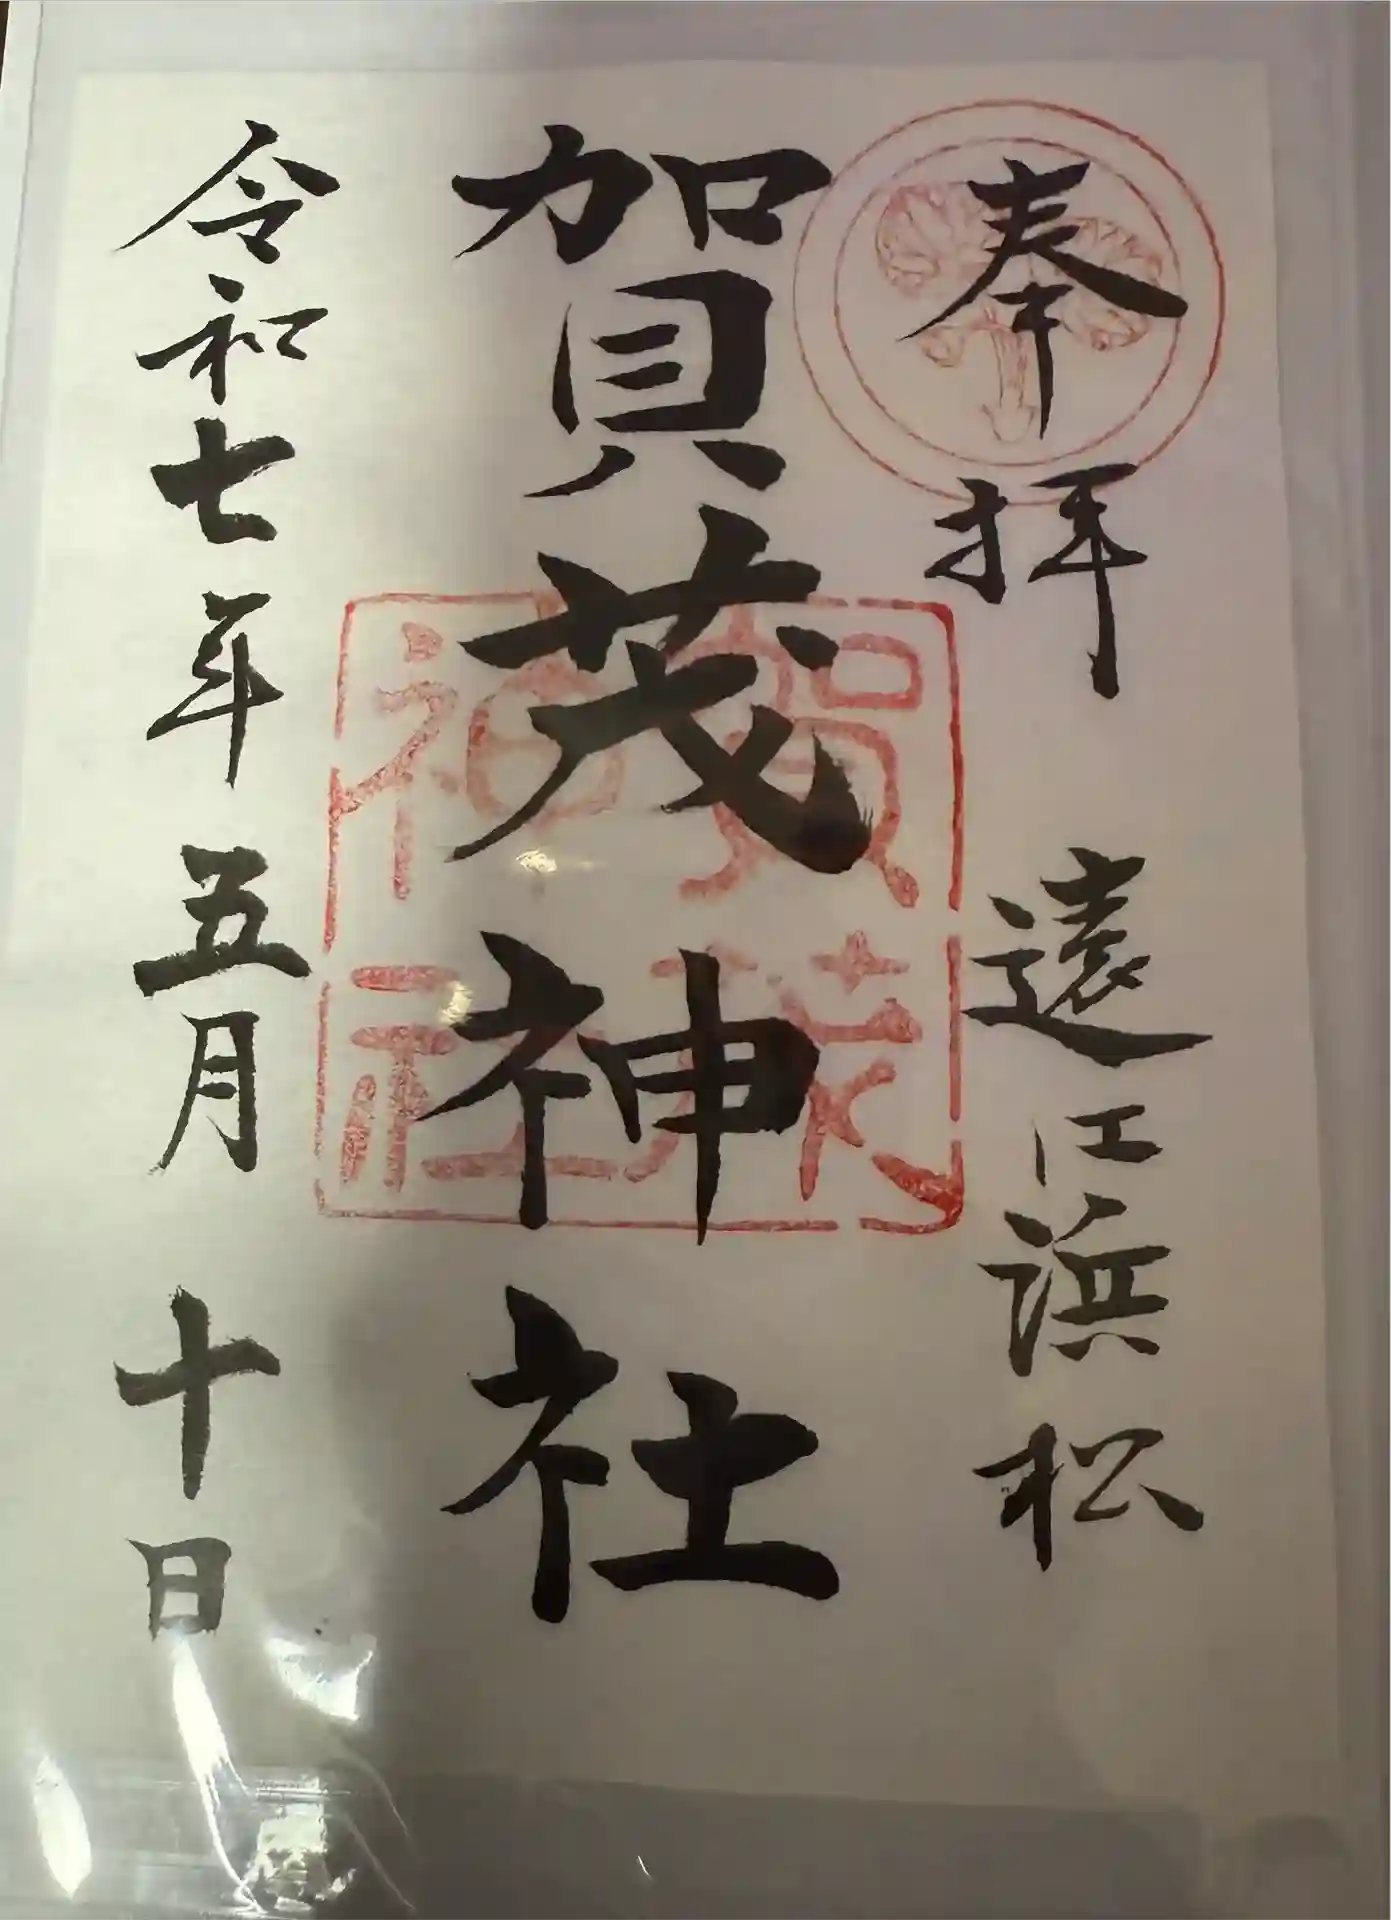 奉拝 遠江浜松
賀茂神社
賀茂神社
令和七年五月十日